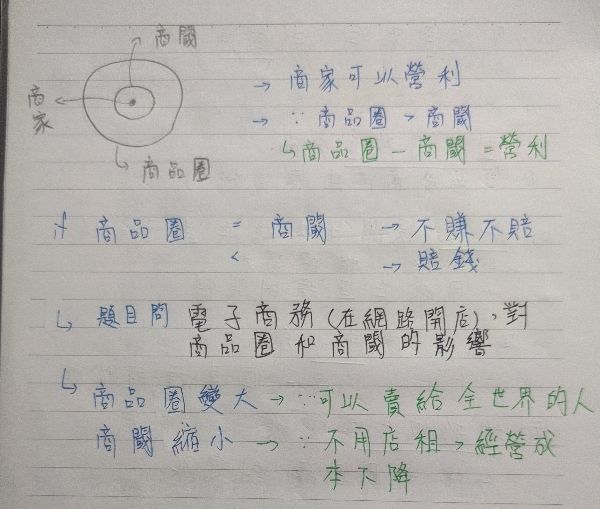 商閾
商家
商品圈
→ 商家可以營利
→ ∵ 商品圈 > 商閾
↳ 商品圈 - 商閾 = 營利
if 商品圈 = 商閾 → 不賺不賠
< → 賠錢
↳ 題目問 電子商務(在網路開店),對
商品圈和商閾的影響
↳ 商品圈變大 → ∵可以賣給全世界的人
商閾縮小 → ∵ 不用店租,經營成
本下降